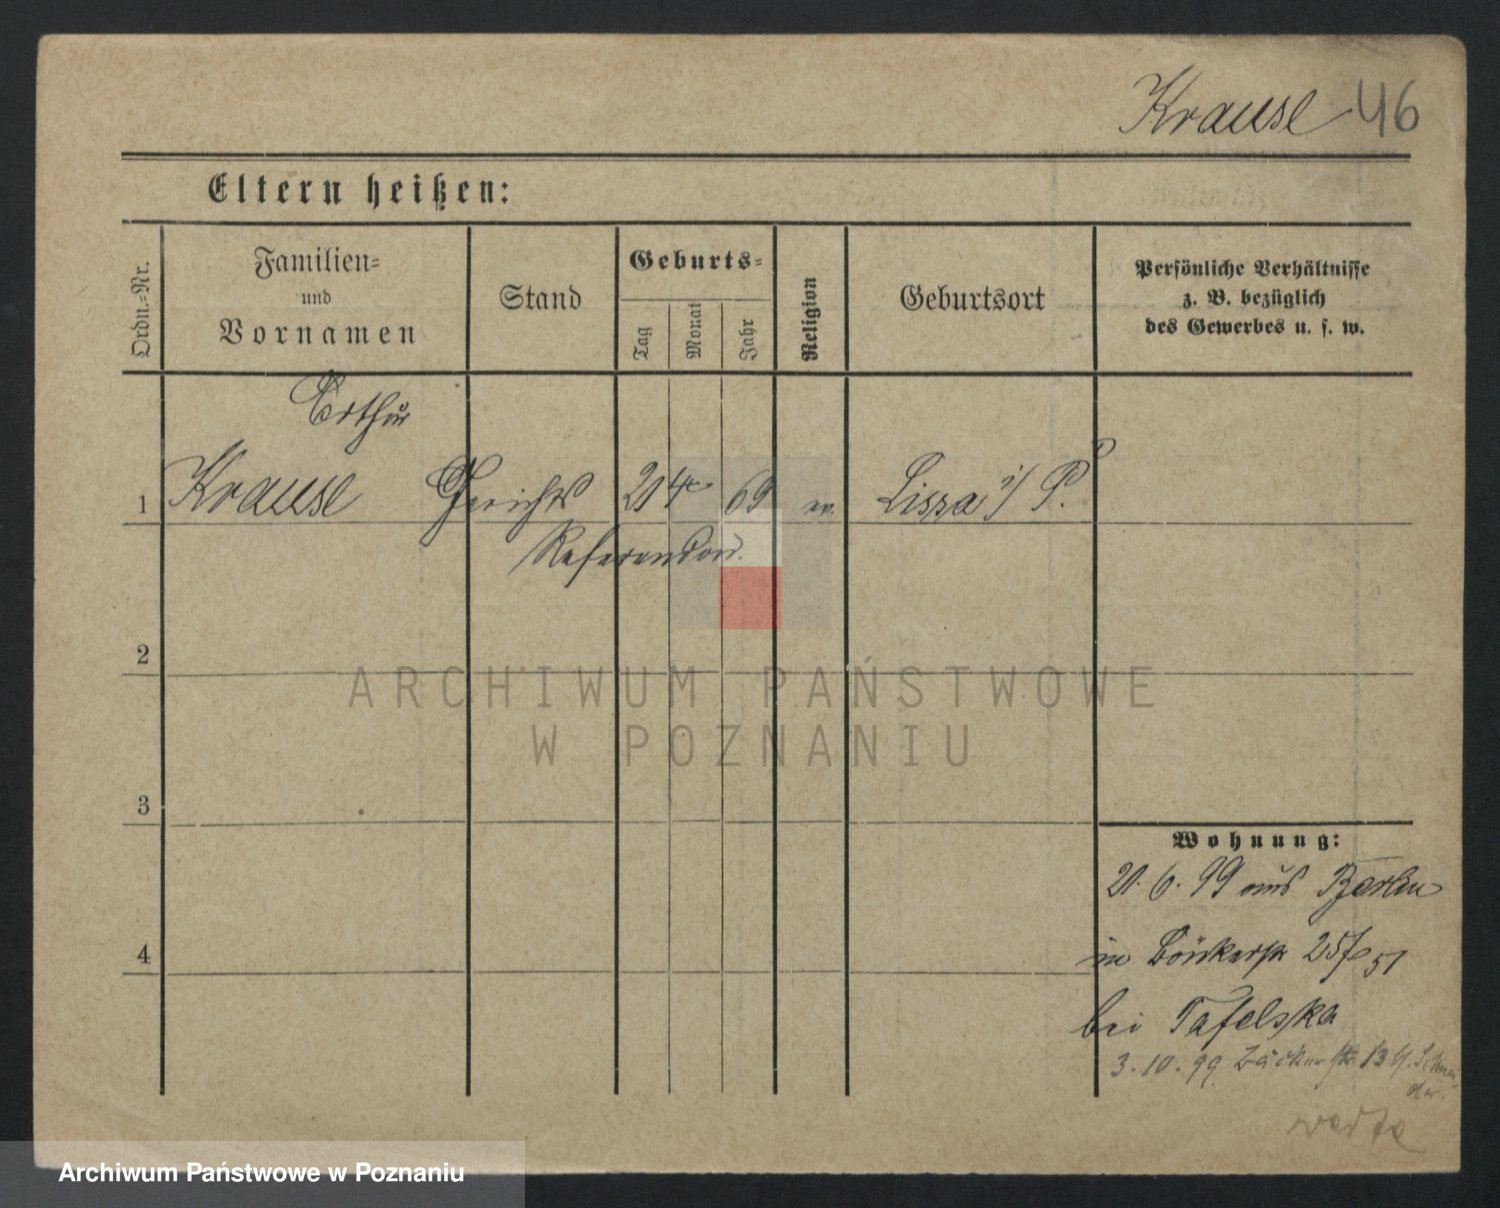 Krause 46
Eltern heißen:
Ordn.=Nr.
Familien=
und
Vornamen
Stand
Geburts=
Tag
Monat
Jahr
Religion
Geburtsort
Persönliche Verhältnisse
z. B. bezüglich
des Gewerbes u. s. w.
Arthur
1 Krause Gerichts 21 4 69 ev. Lissa i/ P.
Referendar.
2
3
4
Wohnung:
21. 6. 99 aus Berlin
in Bäckerstr 25
bei Tafelska
3. 10. 99 Bäckerstr 13 Schnei
der.
ARCHIWUM PAŃSTWOWE
W POZNANIU
Archiwum Państwowe w Poznaniu